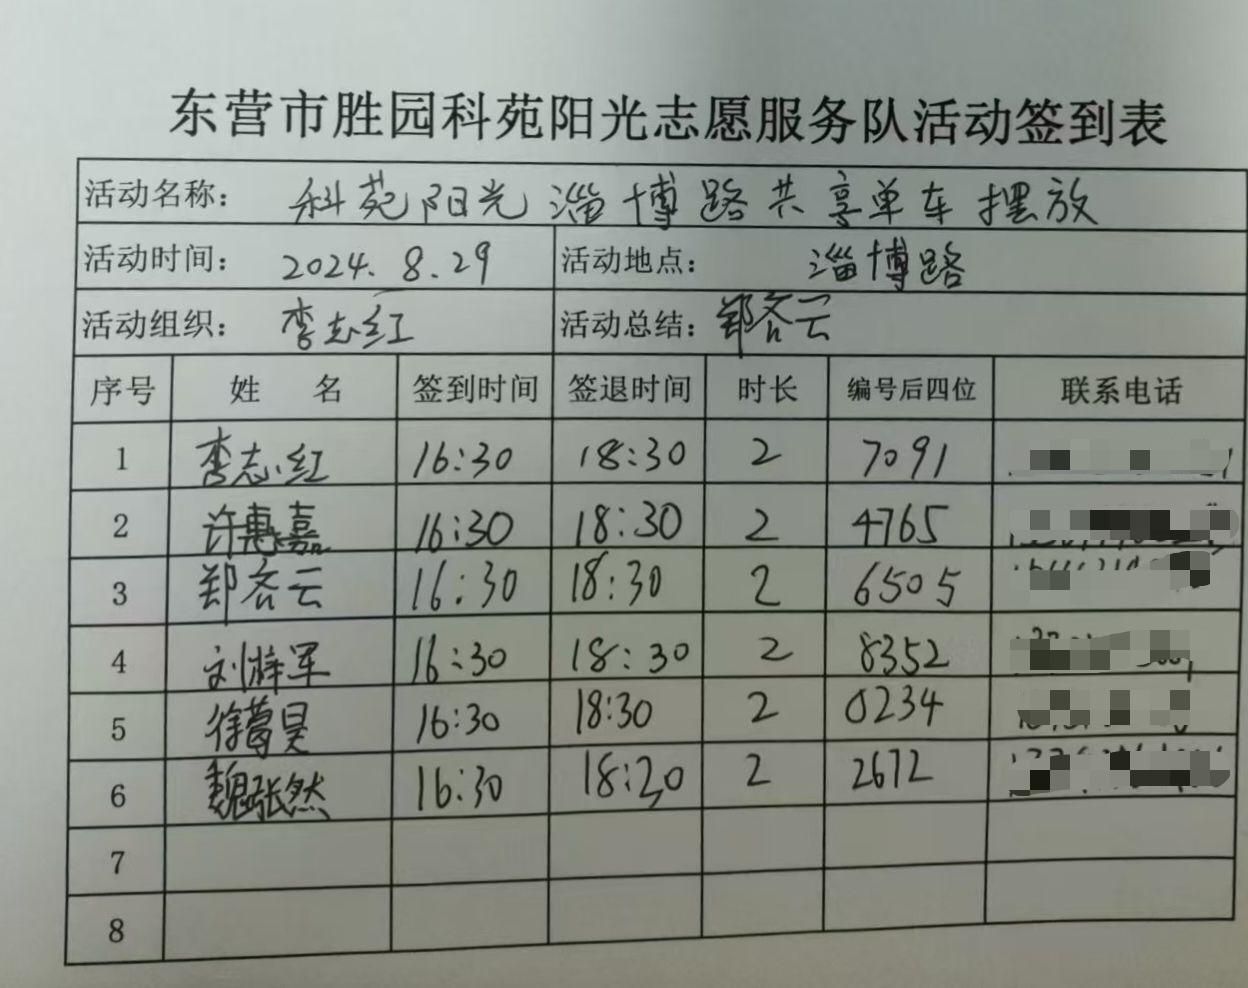 东营市胜园科苑阳光志愿服务队活动签到表
活动名称： 科苑阳光淄博路共享单车摆放
活动时间： 2024.8.29 活动地点： 淄博路
活动组织： 李志红 活动总结： 郑容云
序号 姓 名 签到时间 签退时间 时长 编号后四位 联系电话
1 李志红 16:30 18:30 2 7091
2 许惠嘉 16:30 18:30 2 4765
3 郑容云 16:30 18:30 2 6505
4 刘梓军 16:30 18:30 2 8352
5 徐萼昊 16:30 18:30 2 0234
6 魏张然 16:30 18:30 2 2672
7
8